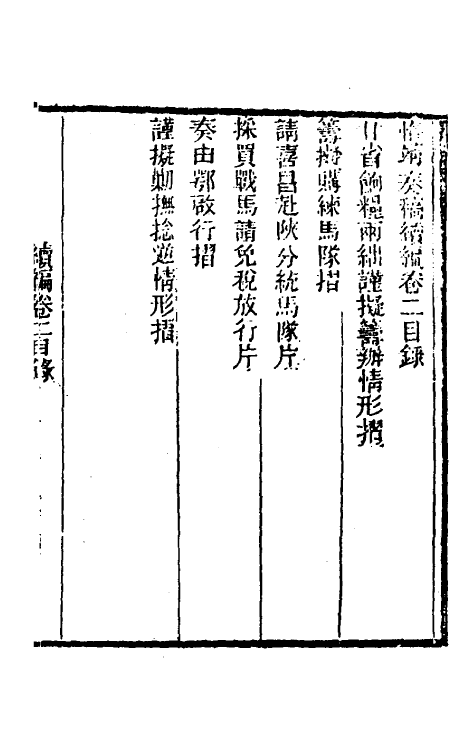 恪靖奏稿續編卷二目錄
甘省餉糧兩絀謹擬籌辦情形摺
籌擬購練馬隊摺
請喜昌赴陝分統馬隊片
採買戰馬請免稅放行片
奏由鄂啟行摺
謹擬剿撫捻逆情形摺
續編卷二目錄